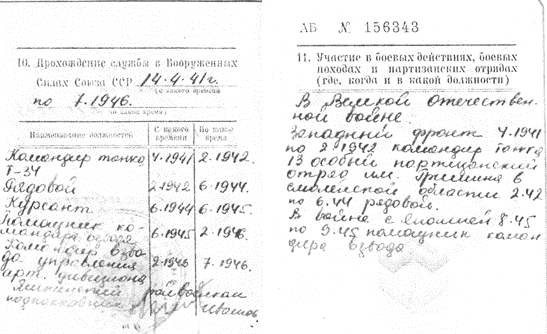 10. Прохождение службы в Вооруженных
Силах Союза ССР 14.4.41г.
(с какого времени
по 7.1946.
по какое время)
Наименование должностей
С какого времени
По какое время
Командир танка Т-34 4.1941 2.1942.
Рядовой 2.1942 6.1944.
Курсант 6.1944 6.1945.
Помощник командира взвода 6.1945 2.1946.
Командир взвода управления арт. дивизиона 2.1946 7.1946.
райвоенком
подполковник
АБ № 156343
11. Участие в боевых действиях, боевых
походах и партизанских отрядах
(где, когда и в какой должности)
В Великой отечествен-
ной войне.
Западный фронт 4.1941
по 2.1942 командир танка
13 особый партизанский
отряд им. Гришина в
смоленской области 2.42
по 6.44 рядовой.
В война с Японией 8.45
по 9.45 помощник коман
дира взвода